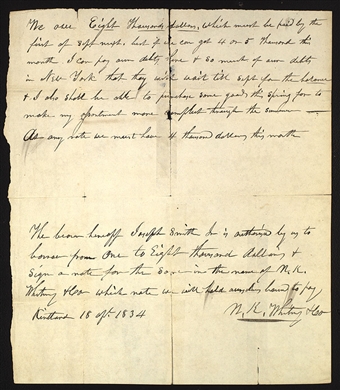 We owe Eight Thousand dollars, which must be paid by the
first of Sept next, but if we can get 4 or 5 Thousand this
month I can pay our debts here & so much of our debts
in New York that they will wait till Sept for the balance
& I also shall be able to purchase some goods this Spring for to
make my assortment more complete through the summer
At any rate we must have 4 thousand dollars this month
The bearer hereoff Joseph Smith Jr is authorised by us to
borrow from One to Eight thousand dollars &
Sign a note for the same in the name of N. K.
Whitney & Co which note we will hold ourselves bound to pay
Kirtland 18 1834
N. K. Whitney & Co